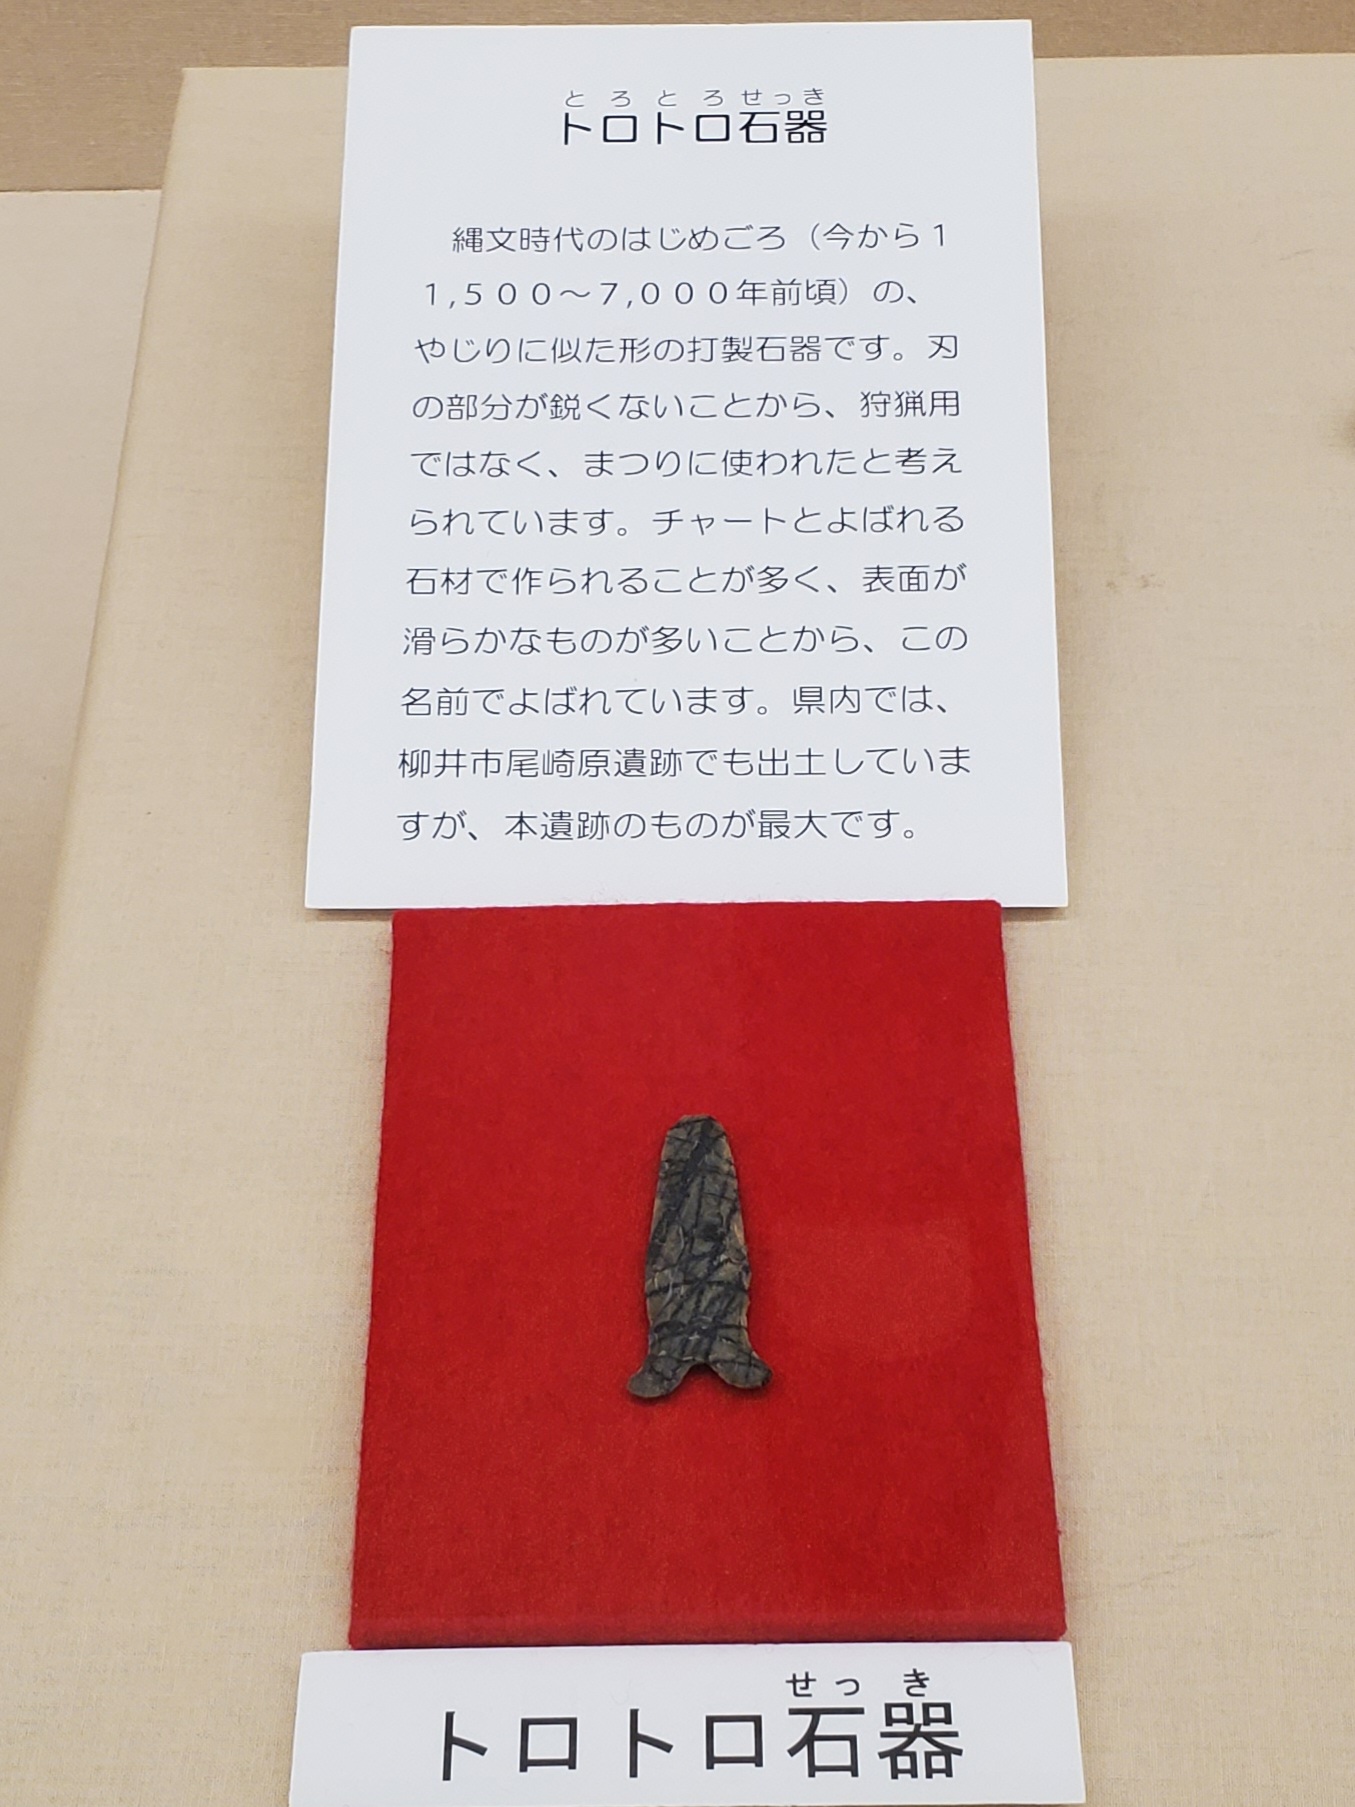 とろとろせっき
トロトロ石器
縄文時代のはじめごろ（今から１
１,５００～７,０００年前頃）の、
やじりに似た形の打製石器です。刃
の部分が鋭くないことから、狩猟用
ではなく、まつりに使われたと考え
られています。チャートとよばれる
石材で作られることが多く、表面が
滑らかなものが多いことから、この
名前でよばれています。県内では、
柳井市尾崎原遺跡でも出土していま
すが、本遺跡のものが最大です。
せっき
トロトロ石器